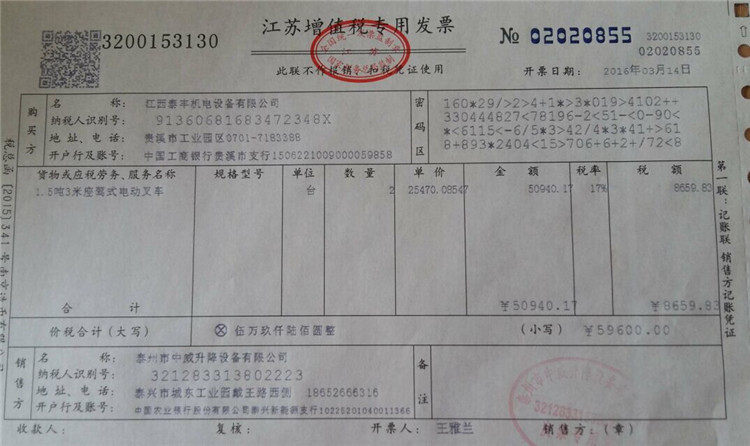 3200153130
江苏增值税专用发票
№ 02020855
3200153130
02020855
此联不作报销、扣税凭证使用
开票日期: 2016年03月14日
购买方
名 称: 江西泰丰机电设备有限公司
纳税人识别号: 91360681683472348X
地 址、电 话: 贵溪市工业园区0701-7183388
开户行及账号: 中国工商银行贵溪市支行1506221009000059858
密码区
160*29/>2>4+1*>3*019>4102++
330444827<78196-2<51-0-90<
*<6115<-6/5*3>42/4*3*41+>61
8+893*2404<15>706+6+2+/72<8
货物或应税劳务、服务名称 规格型号 单位 数 量 单 价 金 额 税率 税 额
1.5吨3米座驾式电动叉车 台 2 25470.08547 50940.17 17% 8659.83
合 计 ￥50940.17 ￥8659.83
价税合计（大写） ⊗ 伍万玖仟陆佰圆整 （小写）￥59600.00
销售方
名 称: 泰州市中威升降设备有限公司
纳税人识别号: 321283313802223
地 址、电 话: 泰兴市城东工业园戴王路西侧 18652666316
开户行及账号: 中国农业银行股份有限公司泰兴新能源支行10225201040011366
备注
收款人: 复核: 开票人: 王雅兰 销售方:（章）
第一联：记账联 销售方记账凭证